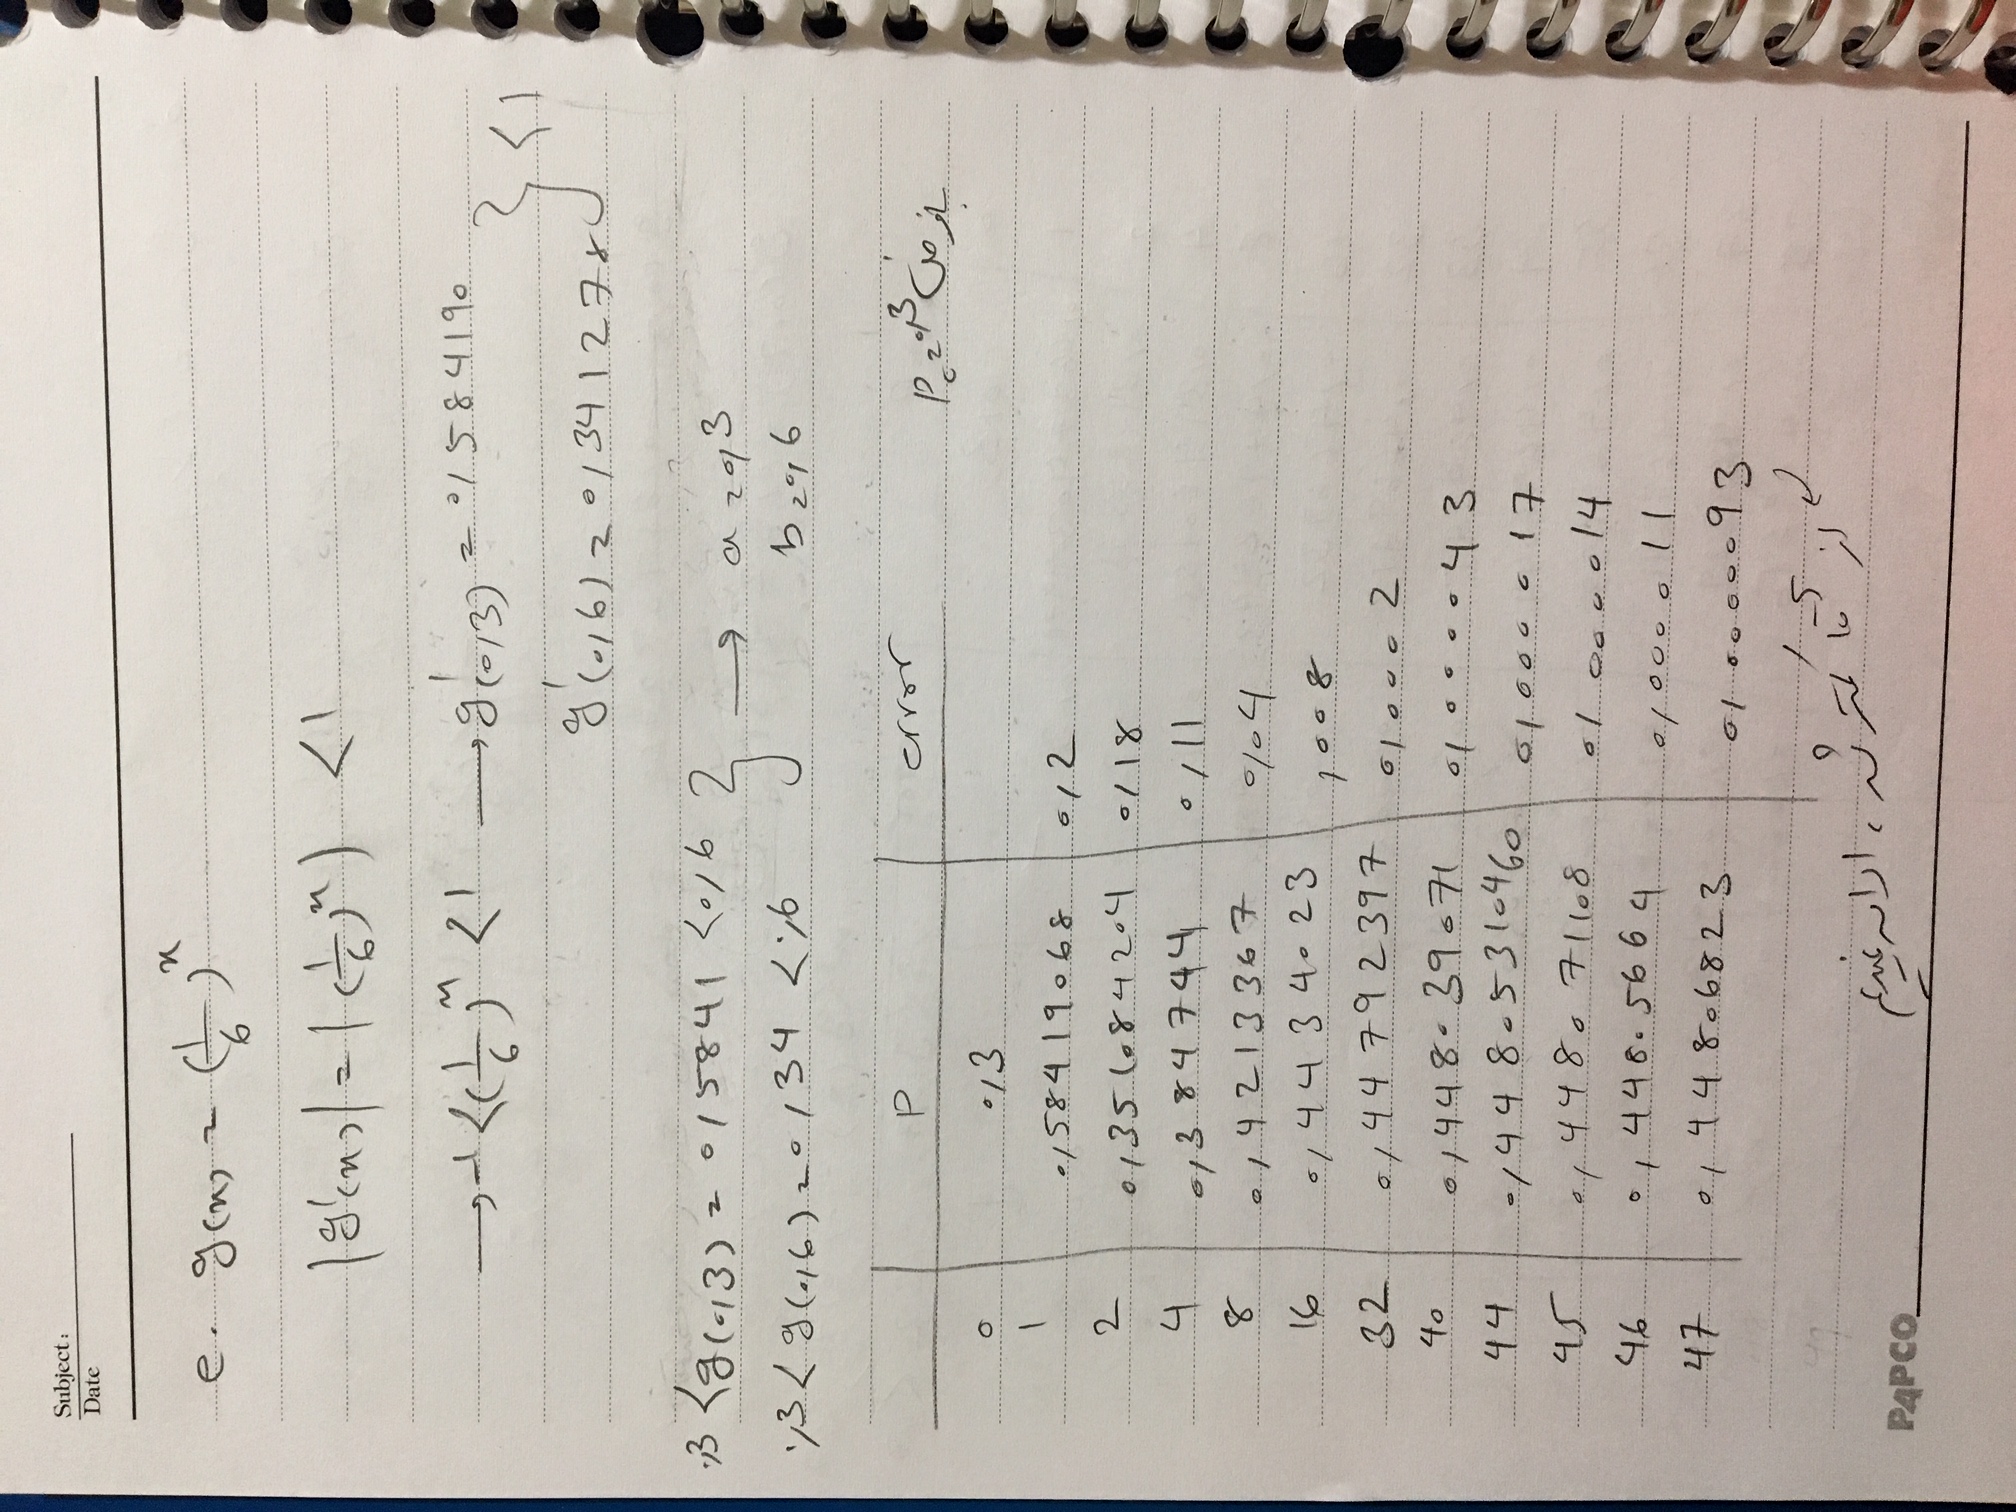 Subject:
Date
e. g(x) = (1/6)^x
|g'(x)| = |(1/6)^x| < 1
→ -1 < (1/6)^x < 1 → g'(0,3) = 0,584190
g'(0,6) = 0,341278 } < 1
0,3 < g(0,3) = 0,5841 < 0,6 } → a = 0,3
0,3 < g(0,6) = 0,34 < 0,6 b = 0,6
P error بافرض P₀ = 0,3
0 0,3
1 0,58419068 0,2
2 0,351084204 0,18
4 0,384744 0,11
8 0,4213367 0,04
16 0,4434023 ,008
32 0,44792397 0,0002
40 0,448039071 0,000043
44 0,44805310460 0,000017
45 0,448071108 0,000014
46 0,44805664 0,000011
47 0,44806823 0,0000093
از تا کمتر شد، ادامه نمیدیم
PAPCO